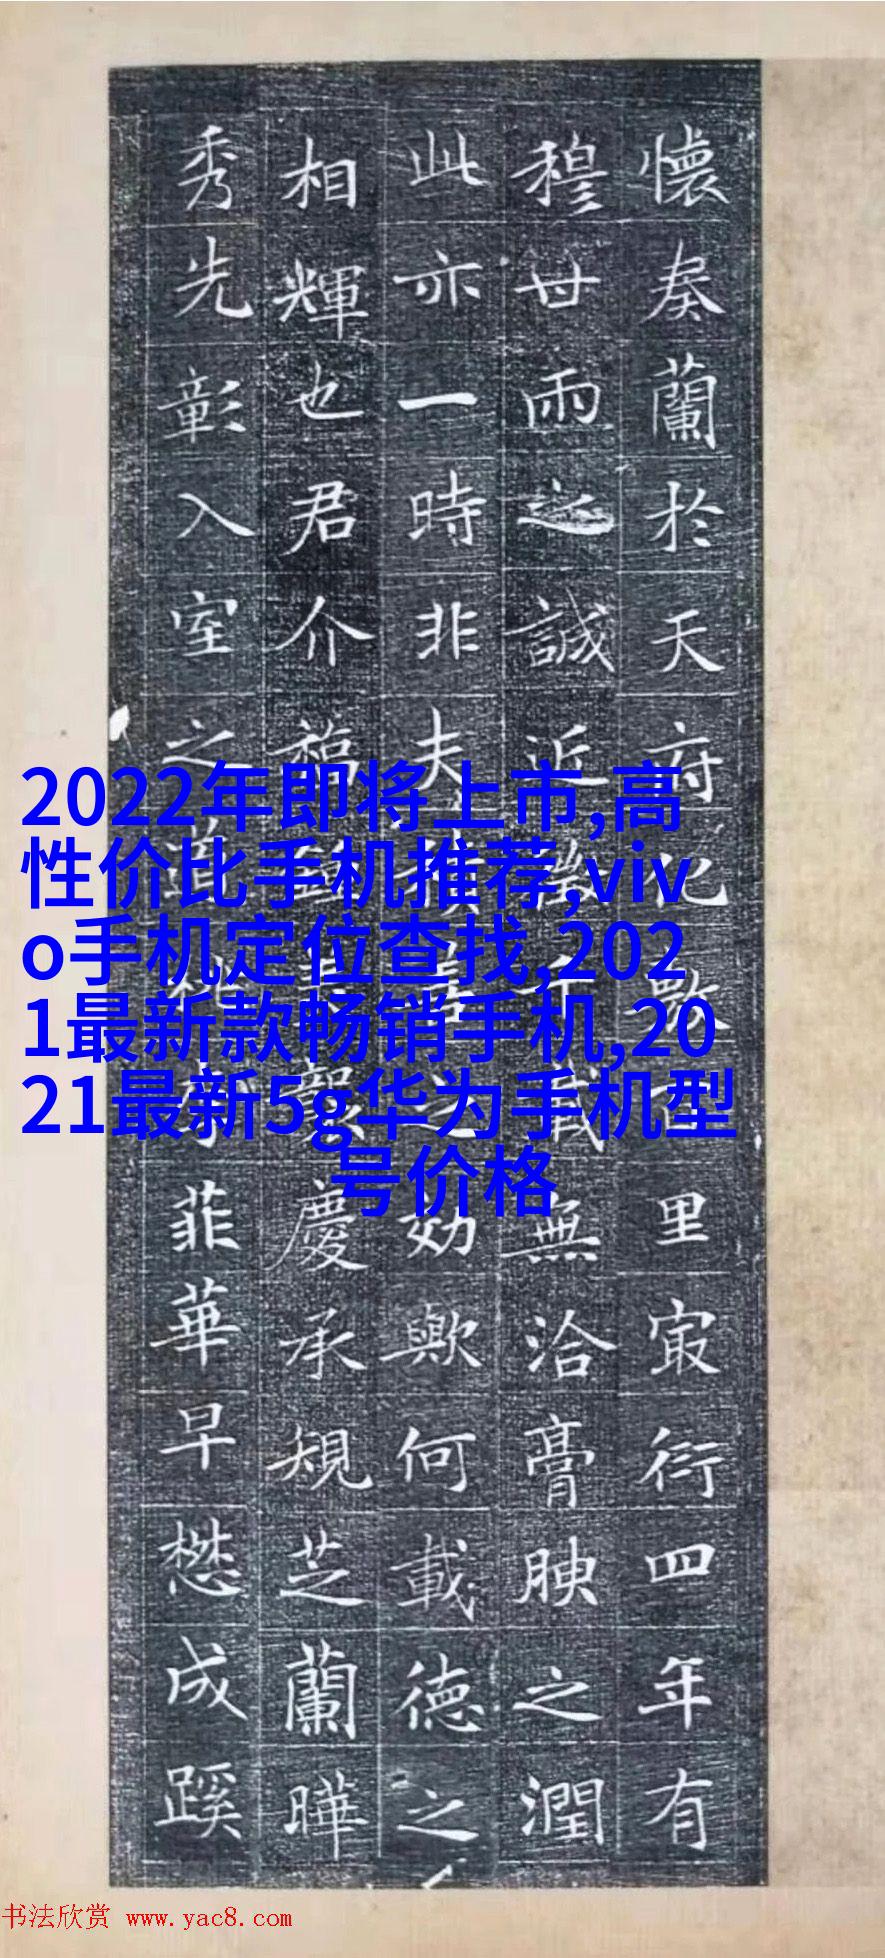 懷奏蘭於天府化里冣衍四年有
穆甘雨之誠近無洽膏腴之潤
此亦一時非夫之効歟何載德之
相輝也君介福慶承規芝蘭曄
秀先彰入室之菲華早懋成蹊
2022年即将上市,高
性价比手机推荐,viv
o手机定位查找,202
1最新款畅销手机,20
21最新5g华为手机型
号价格
书法欣赏 www.yac8.com